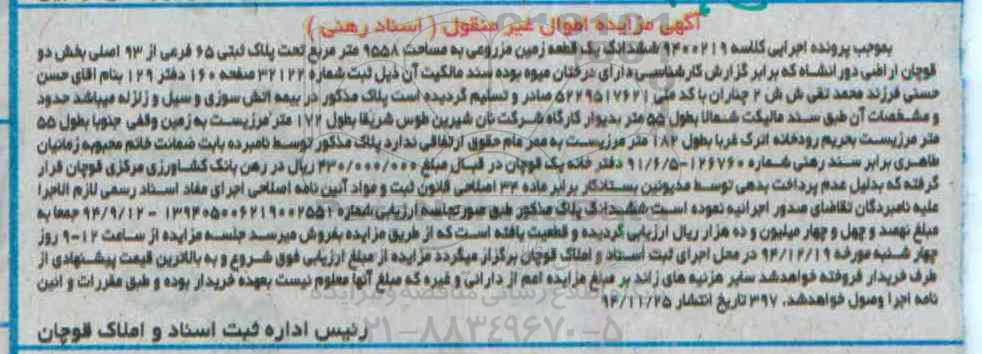 آگهی مزایده اموال غیر منقول ( اسناد رهنی )
بموجب پرونده اجرایی کلاسه ۹۴۰۰۲۱۹ ششدانگ یک قطعه زمین مزروعی به مساحت ۹۵۵۸ متر مربع تحت پلاک ثبتی ۶۵ فرعی از ۹۳ اصلی بخش دو
قوچان اراضی دور انشاه که برابر گزارش کارشناسی دارای درختان میوه بوده سند مالکیت آن ذیل ثبت شماره ۳۲۱۲۲ صفحه ۱۶۰ دفتر ۱۲۹ بنام آقای حسن
حسنی فرزند محمد تقی ش ش ۲ چناران با کد ملی ۵۲۲۹۵۱۷۶۲۱ صادر و تسلیم گردیده است پلاک مذکور در بیمه آتش سوزی و سیل و زلزله میباشد حدود
و مشخصات آن طبق سند مالیکت شمالا بطول ۵۵ متر بدیوار کارگاه شرکت نان شیرین طوس شرقا بطول ۱۷۲ متر مرزیست به زمین وقفی جنوبا بطول ۵۵
متر مرزیست بحریم رودخانه اترک غربا بطول ۱۸۲ متر مرزیست به ممر عام حقوق ارتفاقی ندارد پلاک مذکور توسط نامبرده بابت ضمانت خانم محبوبه زمانیان
طاهری برابر سند رهنی شماره ۱۲۶۷۶۰-۹۱/۶/۵ دفتر خانه یک قوچان در قبال مبلغ ۴۳۰/۰۰۰/۰۰۰ ریال در رهن بانک کشاورزی مرکزی قوچان قرار
گرفته که بدلیل عدم پرداخت بدهی توسط مدیونین بستانکار برابر ماده ۳۴ اصلاحی قانون ثبت و مواد آیین نامه اصلاحی اجرای مفاد اسناد رسمی لازم الاجرا
علیه نامبردگان تقاضای صدور اجرائیه نموده است ششدانگ پلاک مذکور طبق صورتجلسه ارزیابی شماره ۱۳۹۴۰۵۰۰۶۲۱۹۰۰۲۵۵۱ - ۹۴/۹/۱۲ جمعا به
مبلغ نهصد و چهل و چهار میلیون و ده هزار ریال ارزیابی گردیده و قطعیت یافته است که از طریق مزایده بفروش میرسد جلسه مزایده از ساعت ۱۲-۹ روز
چهار شنبه مورخه ۹۴/۱۲/۱۹ در محل اجرای ثبت اسناد و املاک قوچان برگزار میگردد مزایده از مبلغ ارزیابی فوق شروع و به بالاترین قیمت پیشنهادی از
طرف خریدار فروخته خواهدشد سایر هزینه های زائد بر مبلغ مزایده اعم از دارائی و غیره که مبلغ آنها معلوم نیست بعهده خریدار بوده و طبق مقررات و آئین
نامه اجرا وصول خواهدشد. ۳۹۷ تاریخ انتشار ۹۴/۱۱/۲۵
رئیس اداره ثبت اسناد و املاک قوچان
۰۲۱-۸۸۳۴۹۶۷۰-۵